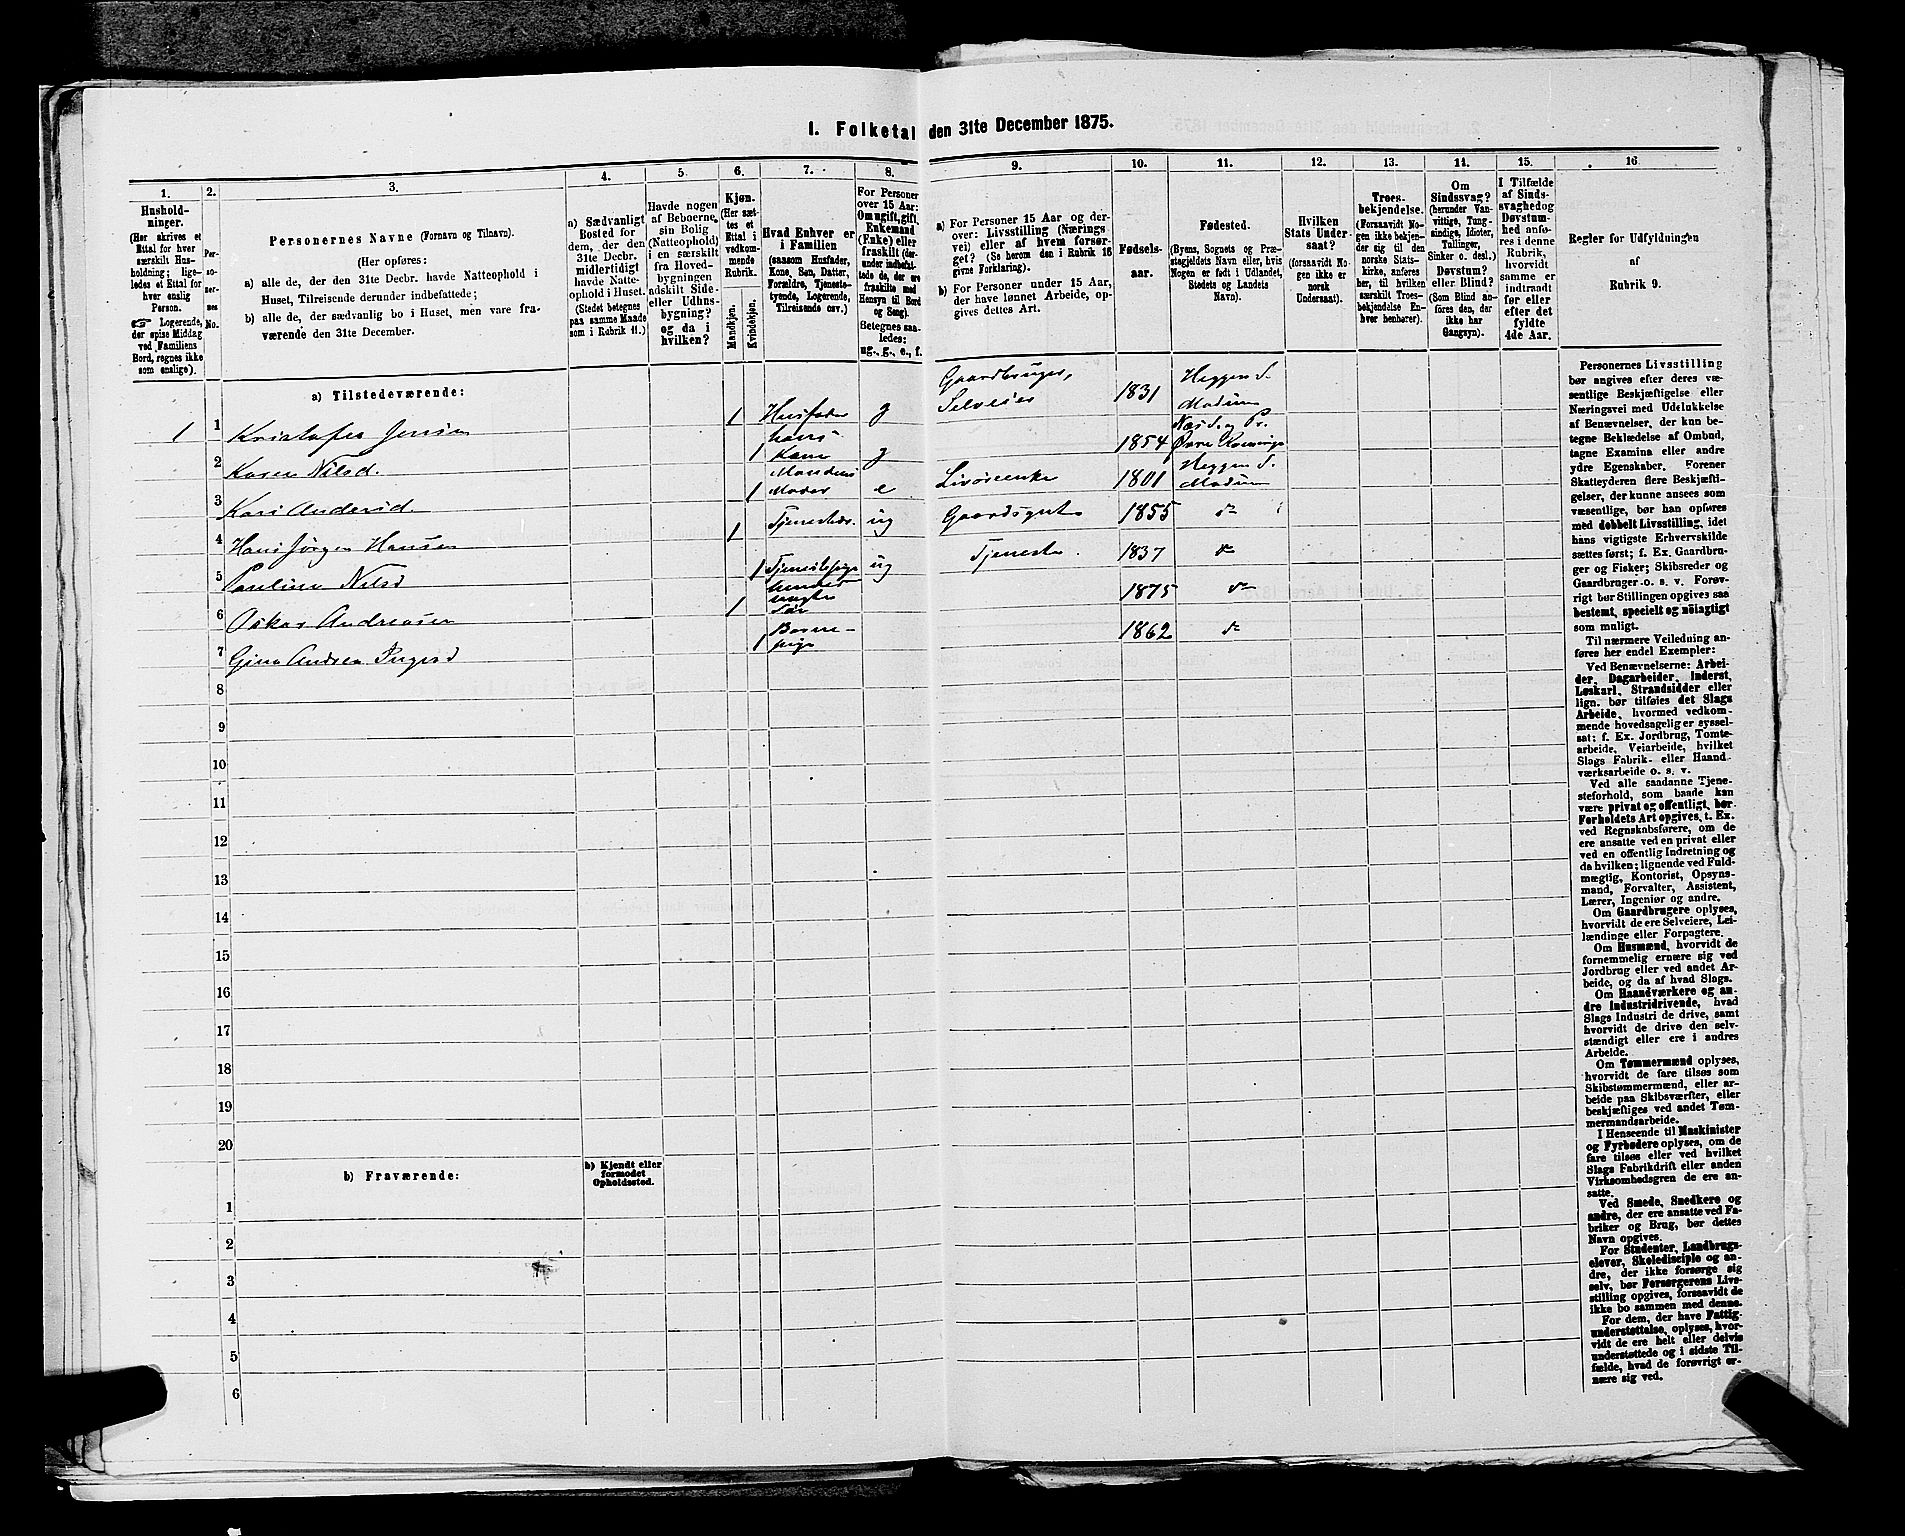 I. Folketal den 31te December 1875.
1.
Hushold-
ninger.
(Her skrives et
Ettal for hver
særskilt Hus-
holdning; lige-
ledes et Ettal for
hver enslig
Person.
Logerende,
der spise Middag
ved Familiens
Bord, regnes ikke
som enslige).
2.
Per-
so-
ner-
nes
No.
3.
Personernes Navne (Fornavn og Tilnavn).
(Her opføres:
a) alle de, der den 31te Decbr. havde Natteophold i
Huset, Tilreisende derunder indbefattede;
b) alle de, der sædvanlig bo i Huset, men vare fra-
værende den 31te December.
4.
a) Sædvanligt
Bosted for
dem, der den
31te Decbr.
midlertidigt
havde Natte-
ophold i Huset.
(Stedet betegnes
paa samme Maade
som i Rubrik 11.)
5.
Havde nogen
af Beboerne
sin Bolig
(Natteophold)
i en særskilt
fra Hoved-
bygningen
adskilt Side-
eller Udhus-
bygning?
og da i
hvilken?
6.
Kjøn.
(Her sæt-
tes et
Ettal i
vedkom-
mende
Rubrik.
Mandkjøn.
Kvindekjøn.
7.
Hvad Enhver er
i Familien
(saasom Husfader,
Kone, Søn, Datter,
Forældre, Tjeneste-
tyende, Logerende,
Tilreisende osv.)
8.
For Personer
over 15 Aar:
Om ugift, gift,
Enkemand
(Enke) eller
fraskilt (der-
under indbefat-
tede de, der ere
fraskilte med
Hensyn til Bord
og Seng).
Betegnes saa-
ledes:
ug., g., e., f.
9.
a) For Personer 15 Aar og der-
over: Livsstilling (Nærings
vei) eller af hvem forsør-
get? (Se herom den i Rubrik 16
givne Forklaring).
b) For Personer under 15 Aar,
der have lønnet Arbeide, op-
gives dettes Art.
10.
Fødsels-
aar.
11.
Fødested.
(Byens, Sognets og Præ-
stegjeldets Navn eller, hvis
Nogen er født i Udlandet,
Stedets og Landets
Navn).
12.
Hvilken
Stats Under
saat?
(forsaavidt No-
gen ikke er
norsk
Undersaat).
13.
Troes-
bekjendelse.
(Forsaavidt No-
gen ikke bekjen-
der sig til den
norske Stats-
kirke, anføres
her, til hvilken
særskilt Troes-
bekjendelse En-
hver henhører).
14.
Om
Sindssvag?
(herunder Van-
vittige, Tung-
sindige, Idioter,
Tullinger,
Sinker o. desl.)
Døvstum?
eller Blind?
(Som Blind an-
føres den, der
ikke har
Gangsyn).
15.
I Tilfælde
af Sinds-
svaghed og
Døvstum-
hed anfø-
res i denne
Rubrik,
hvorvidt
samme er
indtraadt
før eller
efter det
fyldte
4de Aar.
16.
Regler for Udfyldningen
af
Rubrik 9.
a) Tilstedeværende:
1 1 Kristofer Jensen 1 Husfader g Gaardbruger, Selveier 1831 Heggen S. Modum
2 Karen Nilsd. 1 hans Kone g 1854 Næs Pr.
3 Kari Andersd. 1 Mandens Moder e Livørenke 1801 Heggen S. Modum
4 Hans Jørgen Hansen 1 ug Gaardsgut 1855 do
5 Pauline Nilsd 1 Tjenestepige ug Tjeneste 1837 do
6 Oskar Andreasen 1 hendes uægte Søn 1875 do
7 Gina Andrea 1 Barne-pige 1862 do
8
9
10
11
12
13
14
15
16
17
18
19
20
b) Fraværende:
b) Kjendt eller
formodet
Opholdssted.
1
2
3
4
5
6
Personernes Livsstilling
bør angives efter deres væ-
sentlige Beskjæftigelse eller
Næringsvei med Udelukkelse
af Benævnelser, der kun be-
tegne Beklædelse af Ombud,
tagne Examina eller andre
ydre Egenskaber. Forener
Skatteyderen flere Beskjæfti-
gelser, der kunne ansees som
væsentlige, bør han opføres
med dobbelt Livsstilling, idet
hans vigtigste Erhvervskilde
sættes først; f. Ex. Gaardbru-
ger og Fisker; Skibsreder og
Gaardbruger o. s. v. Forøv-
rigt bør Stillingen opgives saa
bestemt, specielt og nöiagtigt
som muligt.
Til nærmere Veiledning an-
føres her endel Exempler:
Ved Benævnelserne: Arbei-
der, Dagarbeider, Inderst,
Løskarl, Strandsidder eller
lign. bør tilføies det Slags
Arbeide, hvormed vedkom-
mende hovedsagelig er syssel-
sat; f. Ex. Jordbrug, Tomte-
arbeide, Veiarbeide, hvilket
Slags Fabrik- eller Haand
værksarbeide o. s. v.
Ved alle saadanne Tjene-
steforhold, som baade kan
være privat og offentligt, bør
Forholdets Art opgives, t. Ex.
ved Regnskabsførere, om de
ere ansatte ved en privat eller
ved en offentlig Indretning og
da hvilken; lignende ved Fuld-
mægtig, Kontorist, Opsyns-
mand, Forvalter, Assistent,
Lærer, Ingeniør og andre.
Om Gaardbrugere oplyses,
hvorvidt de ere Selveiere, Lei-
lændinge eller Forpagtere.
Om Husmænd, hvorvidt de
fornemmelig ernære sig ved
Jordbrug eller ved andet Ar-
beide, og da af hvad Slags.
Om Haandværkere og an-
dre Industridrivende, hvad
Slags Industri de drive, samt
hvorvidt de drive den selv-
stændigt eller ere i andres
Arbeide.
Om Tømmermænd oplyses,
hvorvidt de fare tilsøs som
Skibstømmermænd, eller ar-
beide paa Skibsværfter, eller
beskjæftiges ved andet Tøm-
mermandsarbeide.
I Henseende til Maskinister
og Fyrbødere oplyses, om de
fare tilsøs eller ved hvilket
Slags Fabrikdrift eller anden
Virksomhedsgren de ere an-
satte.
Ved Smede, Snedkere og
andre, der ere ansatte ved Fa-
briker og Brug, bør dettes
Navn opgives.
For Studenter, Landbrugs-
elever, Skoledisciple og an-
dre, der ikke forsørge sig
selv, bør Forsørgerens Livs-
stilling opgives, forsaavidt de
ikke bo sammen med denne.
For dem, der have Fattig-
understøttelse, oplyses, hvor-
vidt de ere helt eller delvis
understøttede og i sidste Til-
fælde, hvad de forøvrigt er-
nære sig ved.